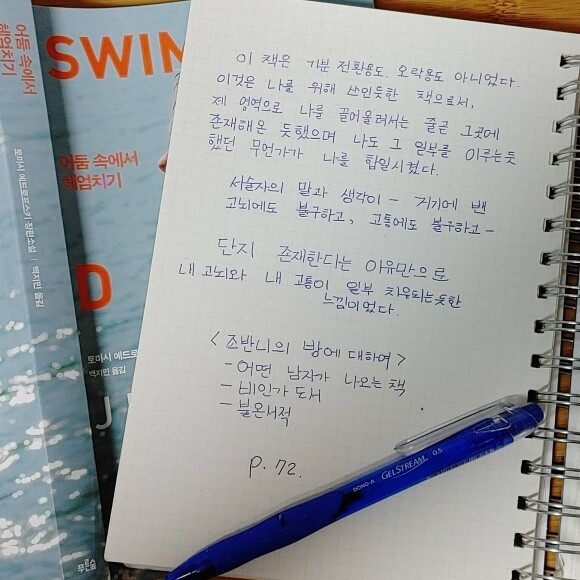 어둠 속에서
헤엄치기
토마시 예드로프스키 장편소설 | 백지민 옮김
푸른숲
SWIM
어둠 속에서
헤엄치기
D
토마시 예드로
백지민 옮김
J
이 책은 기분 전환용도, 오락용도 아니었다.
이것은 나를 위해 쓰인듯한 책으로서,
제 영역으로 나를 끌어올려서는 줄곧 그곳에
존재해온 듯했으며 나도 그 일부를 이루는듯
했던 무언가가 나를 합일시켰다.
서술자의 말과 생각이 – 거기에 밴
고뇌에도 불구하고, 고통에도 불구하고 –
단지 존재한다는 이유만으로
내 고뇌와 내 고통이 일부 치유되는듯한
느낌이었다.
< 조반니의 방에 대하여 >
- 어떤 남자가 나오는 책
- 비인가 도서
- 불온서적
p. 72.
DONG-A GELSTREAM 0.5